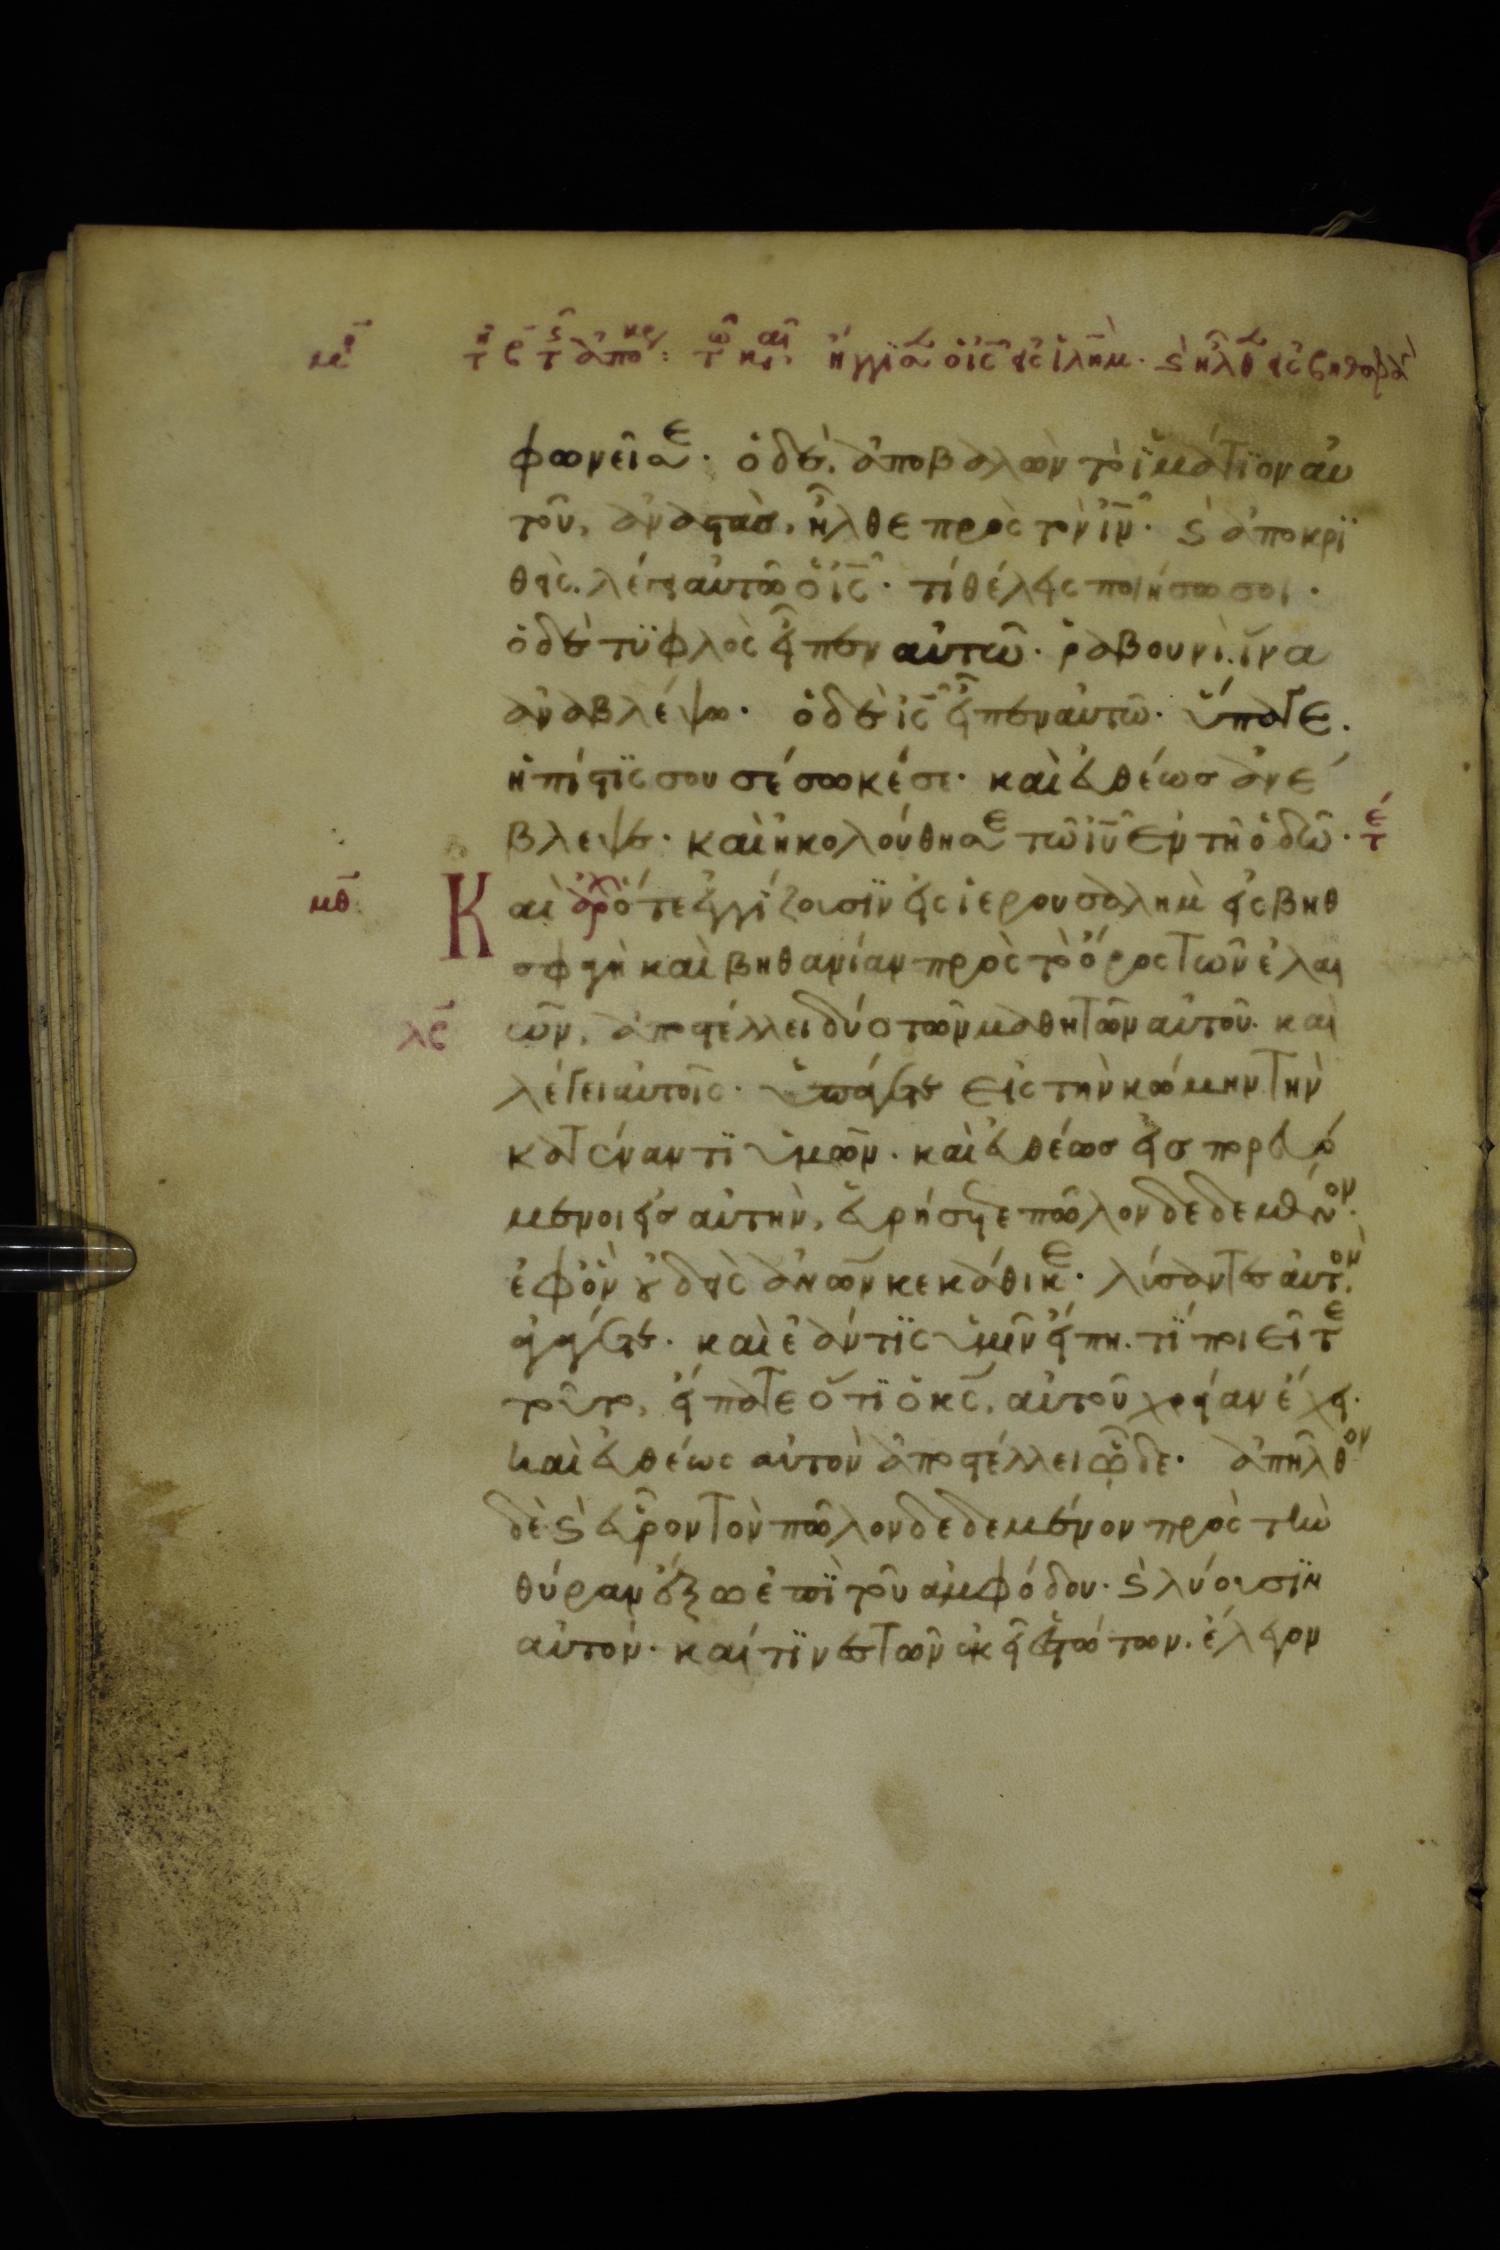 μθ τῇ β τῆς ἀπόκρ: τῷ και ἤγγισεν ὁ ις εἰς ιλημ. ϛ ἦλθεν εἰς βηθσφαγὴ
φωνεῖ σε. ὁ δὲ ἀποβαλὼν τὸ ϊμάτϊον αυ
τοῦ, ἀναστὰσ, ἦλθε πρὸς τὸν ιν. ϛ ἀποκρϊ
θεὶς. λέγει αὐτῶ ὁ ις. τί θέλεις ποιήσω σοι.
ὁ δὲ τϋφλὸς εἶπεν αὐτῶ. ῥαβουνὶ. ἵνα
ἀναβλέψω. ὁ δὲ ις εἶπεν αὐτῶ. ὕπαγε.
ἡ πίστϊς σου σέσωκέ σε. καὶ εὐθέωσ ἀνέ
βλεψε. καὶ ἠκολούθησε τῶ ιυ ἐν τῆ ὁδῶ. τέ
μθ Καὶ αρχ ὅτε ἐγγίζουσϊν εἰς ἱερουσαλὴμ εἰς βηθ
σφαγὴ καὶ βηθανίαν πρὸς τὸ ὄρος τῶν ἐλαι
λς ῶν, ἀποστέλλει δύο τῶν μαθητῶν αὐτοῦ. καὶ
λέγει αὐτοῖς. ὑπάγετε εἰς τὴν κώμην τὴν
κατέναντϊ ὑμῶν. καὶ εὐθέωσ εἰσπορευό
μενοι εἰσ αὐτὴν, εὑρήσετε πῶλον δεδεμένον.
ἐφ ὃν οὐδεὶς ἀνων κεκάθικε. λύσαντεσ αὐτὸν,
ἀγάγετε. καὶ ἐάν τϊς ὑμῖν εἴπη. τϊ ποιεῖτε
τοῦτο, εἴπατε ὅτϊ ὁ κς, αὐτοῦ χρείαν ἔχει.
καὶ εὐθέως αὐτὸν ἀποστέλλει ὧδε. ἀπῆλθον
δὲ ϛ εὗρον τὸν πῶλον δεδεμένον πρὸς τὴν
θύραν ἔξω ἐπϊ τοῦ ἀμφόδου. ϛ λύουσϊν
αὐτόν. καί τϊνες τῶν ἐκεῖ ἑστώτων. ἔλεγον